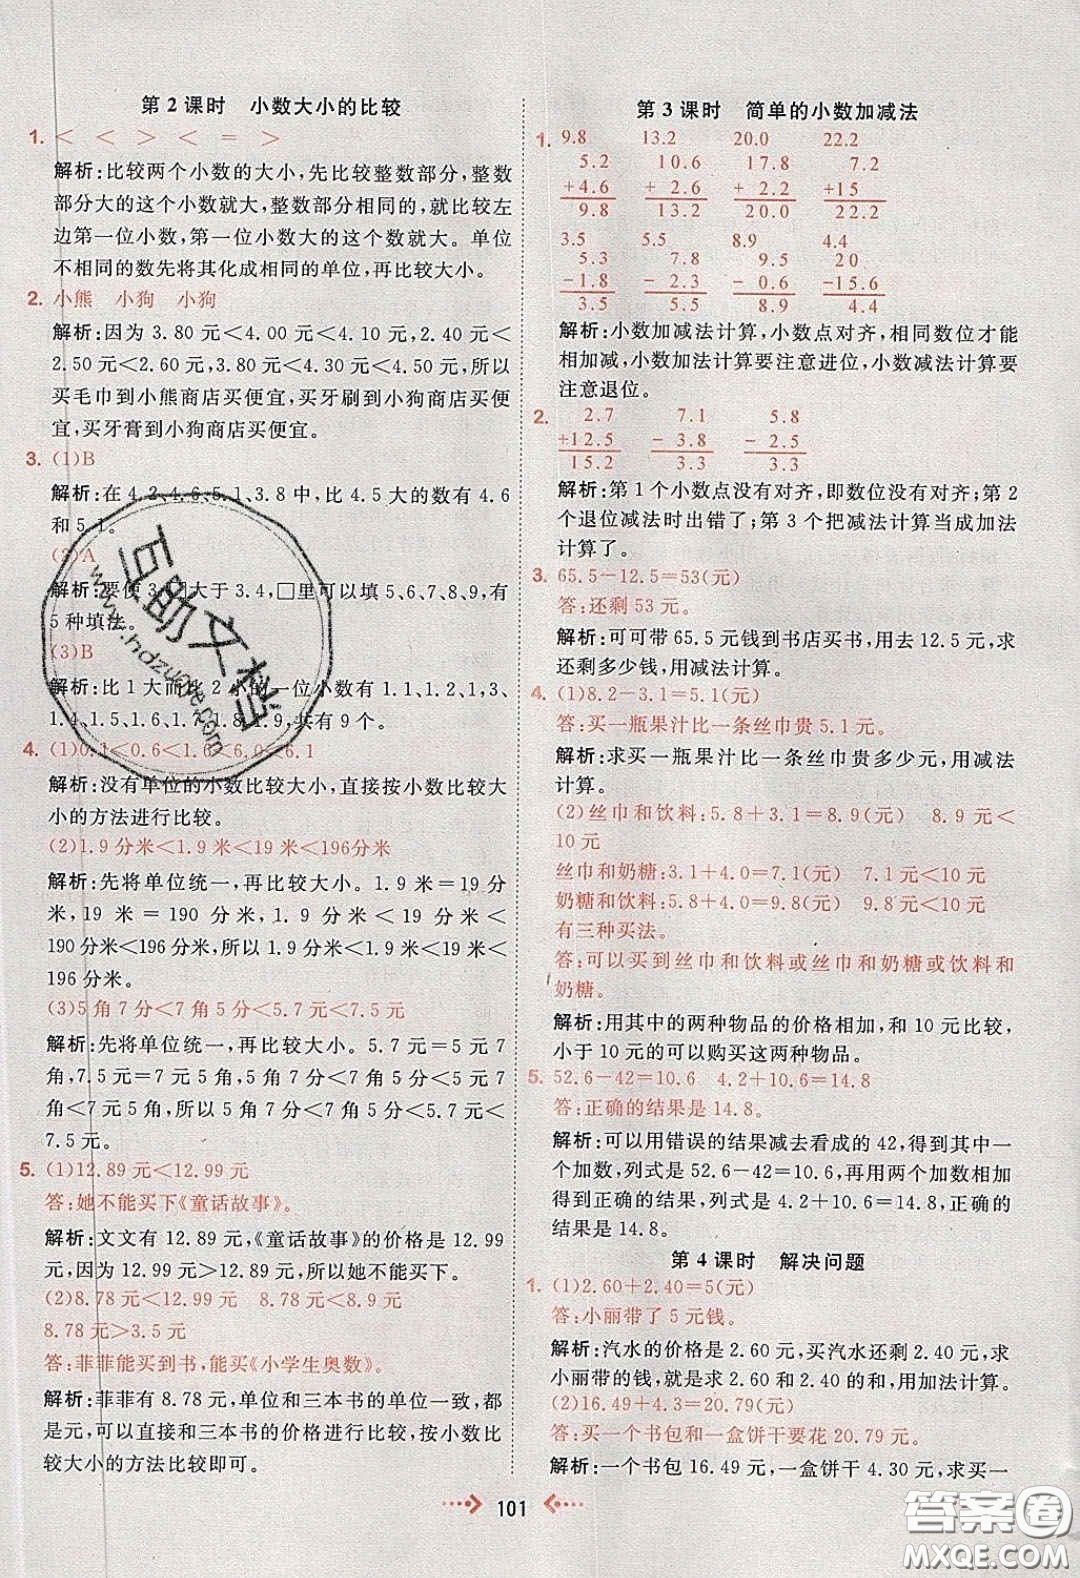 第2课时　小数大小的比较
1. ＜　＜　＞　＜　＝　＞
解析:比较两个小数的大小,先比较整数部分,整数
部分大的这个小数就大,整数部分相同的,就比较左
边第一位小数,第一位小数大的这个数就大。单位
不相同的数先将其化成相同的单位,再比较大小。
2. 小熊　小狗　小狗
解析:因为 3.80 元＜4.00 元＜4.10 元,2.40 元＜
2.50 元＜2.60 元,3.80 元＜4.30 元＜4.50 元,所以
买毛巾到小熊商店买便宜,买牙刷到小狗商店买便
宜,买牙膏到小狗商店买便宜。
3. (1)B
解析:在 4.2、4.6、5.1、3.8 中,比 4.5 大的数有 4.6
和 5.1。
(2)A
解析:要使 3.□大于 3.4,□里可以填 5、6、7、8、9,有
5 种填法。
(3)B
解析:比 1 大而比 2 小的一位小数有 1.1、1.2、1.3、
1.4、1.5、1.6、1.7、1.8、1.9,共有 9 个。
4. (1)0.1＜0.6＜1.6＜6.0＜6.1
解析:没有单位的小数比较大小,直接按小数比较大
小的方法进行比较。
(2)1.9 分米＜1.9 米＜19 米＜196分米
解析:先将单位统一,再比较大小。1.9 米＝19 分
米,19 米＝190 分米,1.9 分米＜19 分米＜
190 分米＜196 分米,所以 1.9 分米＜1.9 米＜19 米＜
196 分米。
(3)5 角 7 分＜7 角 5 分＜5.7 元＜7.5 元
解析:先将单位统一,再比较大小。5.7 元＝5 元 7
角,7.5 元＝7 元 5 角,5 角 7 分＜7 角 5 分＜5 元 7
角＜7 元 5 角,所以 5 角 7 分＜7 角 5 分＜5.7 元＜
7.5 元。
5. (1)12.89 元＜12.99 元
答:她不能买下《童话故事》。
解析:文文有 12.89 元,《童话故事》的价格是 12.99
元,因为 12.99 元＞12.89 元,所以她不能买下。
(2)8.78 元＜12.99 元　8.78 元＜9.8 元
8.78 元＞3.5 元
答:菲菲能买到书,能买《小学生奥数》。
解析:菲菲有 8.78 元,单位和三本书的单位一致,都
是元,可以直接和三本书的价格进行比较,按小数比
较大小的方法比较即可。
第3课时　简单的小数加减法
1. 9.8　13.2　20.0　22.2
5.2　10.6　17.8　7.2
＋4.6　＋ 2.6　＋ 2.2　＋15
9.8　13.2　20.0　22.2
3.5　5.5　8.9　4.4
5.3　7.8　9.5　20
－1.8　－ 2.3　－ 0.6　－15.6
3.5　5.5　8.9　4.4
解析:小数加减法计算,小数点对齐,相同数位才能
相加减,小数加法计算要注意进位,小数减法计算要
注意退位。
2. 2.7　7.1　5.8
＋12.5　－ 3.8　－ 2.5
15.2　3.3　3.3
解析:第 1 个小数点没有对齐,即数位没有对齐;第 2
个退位减法时出错了;第 3 个把减法计算当成加法
计算了。
3. 65.5－12.5＝53(元)
答:还剩 53 元。
解析:可可带 65.5 元钱到书店买书,用去 12.5 元,求
还剩多少钱,用减法计算。
4. (1)8.2－3.1＝5.1(元)
答:买一瓶果汁比一条丝巾贵 5.1 元。
解析:求买一瓶果汁比一条丝巾贵多少元,用减法
计算。
(2)丝巾和饮料:5.8＋3.1＝8.9(元)　8.9 元＜
10 元
丝巾和奶糖:3.1＋4.0＝7.1(元)　7.1 元＜10 元
奶糖和饮料:5.8＋4.0＝9.8(元)　9.8 元＜10 元
有三种买法。
答:可以买到丝巾和饮料或丝巾和奶糖或饮料和
奶糖。
解析:用其中的两种物品的价格相加,和 10 元比较,
小于 10 元的可以购买这两种物品。
5. 52.6－42＝10.6　4.2＋10.6＝14.8
答:正确的结果是 14.8。
解析:可以用错误的结果减去看成的 42,得到其中一
个加数,列式是 52.6－42＝10.6,再用两个加数相加
得到正确的结果,列式是 4.2＋10.6＝14.8。正确的
结果是 14.8。
第4课时　解决问题
1. (1)2.60＋2.40＝5(元)
答:小丽带了 5 元钱。
解析:汽水的价格是 2.60 元,买汽水还剩 2.40 元,求
小丽带的钱,就是求 2.60 和 2.40 的和,用加法计算。
(2)16.49＋4.3＝20.79(元)
答:买一个书包和一盒饼干要花 20.79 元。
解析:一个书包 16.49 元,一盒饼干 4.30 元,求买一
101
互助文档
www.hdzuoye.com
答案圈
MXQE.COM